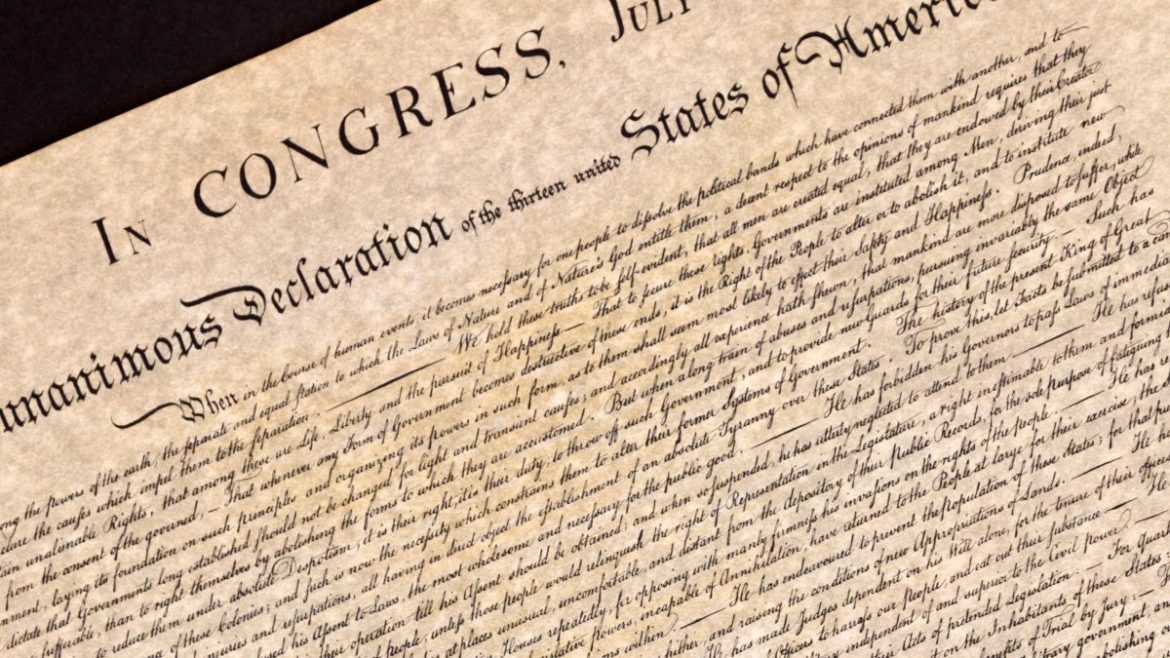 IN CONGRESS, JULY
unanimous Declaration of the thirteen united States of America
When in the Course of human events it becomes necessary for one people to dissolve the political bands which have connected them with another, and to
the powers of the earth, the separate and equal station to which the Laws of Nature and of Nature's God entitle them, a decent respect to the opinions of mankind requires that they
declare the causes which impel them to the separation. — We hold these truths to be self-evident, that all men are created equal, that they are endowed by their Creator
unalienable Rights, that among these are Life, Liberty and the pursuit of Happiness — That to secure these rights, Governments are instituted among Men, deriving their just
from the consent of the governed, — That whenever any Form of Government becomes destructive of these ends, it is the Right of the People to alter or to abolish it, and to institute new
laying its foundation on such principles and organizing its powers in such form, as to them shall seem most likely to effect their Safety and Happiness. Prudence, indeed,
dictate that Governments long established should not be changed for light and transient causes; and accordingly all experience hath shewn, that mankind are more disposed to suffer, while
sufferable, than to right themselves by abolishing the forms to which they are accustomed. But when a long train of abuses and usurpations, pursuing invariably the same Object
to reduce them under absolute Despotism, it is their right, it is their duty, to throw off such Government, and to provide new Guards for their future security. — Such has
of these Colonies; and such is now the necessity which constrains them to alter their former Systems of Government. The history of the present King of Great
injuries and usurpations, all having in direct object the establishment of an absolute Tyranny over these States. To prove this, let Facts be submitted to a
his Assent to Laws, the most wholesome and necessary for the public good. — He has forbidden his Governors to pass Laws of
their operation till his Assent should be obtained; and when so suspended, he has utterly neglected to attend to them. — He has
of people, unless those people would relinquish the right of Representation in the Legislature, a right inestimable to them and
at places unusual, uncomfortable, and distant from the depository of their Public Records, for the sole purpose of fatiguing
Houses repeatedly, for opposing with manly firmness his invasions on the rights of the people. — He has
powers, incapable of Annihilation, have returned to the People at large for their exercise; the
within — He has endeavoured to prevent the population of these States; for that
hither, and raising the conditions of new Appropriations of Lands. — He
has made Judges dependent on his Will alone, for the tenure of their
Officers to harrass our people, and eat out their substance — He
independent of and superior to the Civil power —
their Acts of pretended Legislation: — For
on the Inhabitants of these States
of Trial by jury: —
government,
abolishing